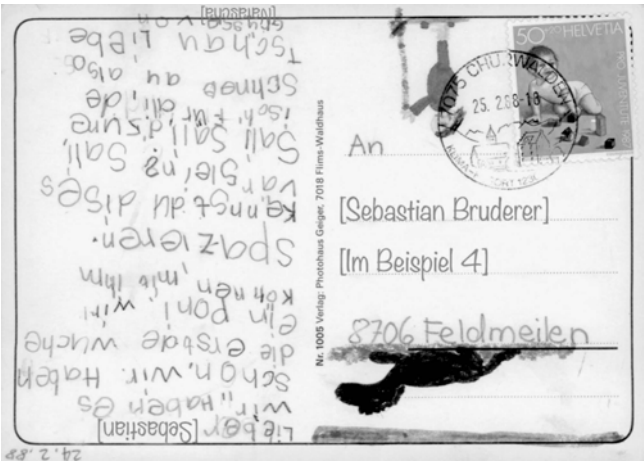 24.2.88
Lieber [Sebastian]
wir,, Haben es
schon, wir. Haben
die erstde wuche
ein poni, wir
können, mit ihm
spazieren.
kenngst du dises
Sali,
Sali Sali,
isch für di, de
au also
Tschau Liebe
Gruss, von
[Natascha]
Nr. 1005 Verlag: Photohaus Geiger, 7018 Flims-Waldhaus
50+20 HELVETIA
7075 CHURWALDEN
25.2.88-18
An
[Sebastian Bruderer]
[Im Beispiel 4]
8706 Feldmeilen